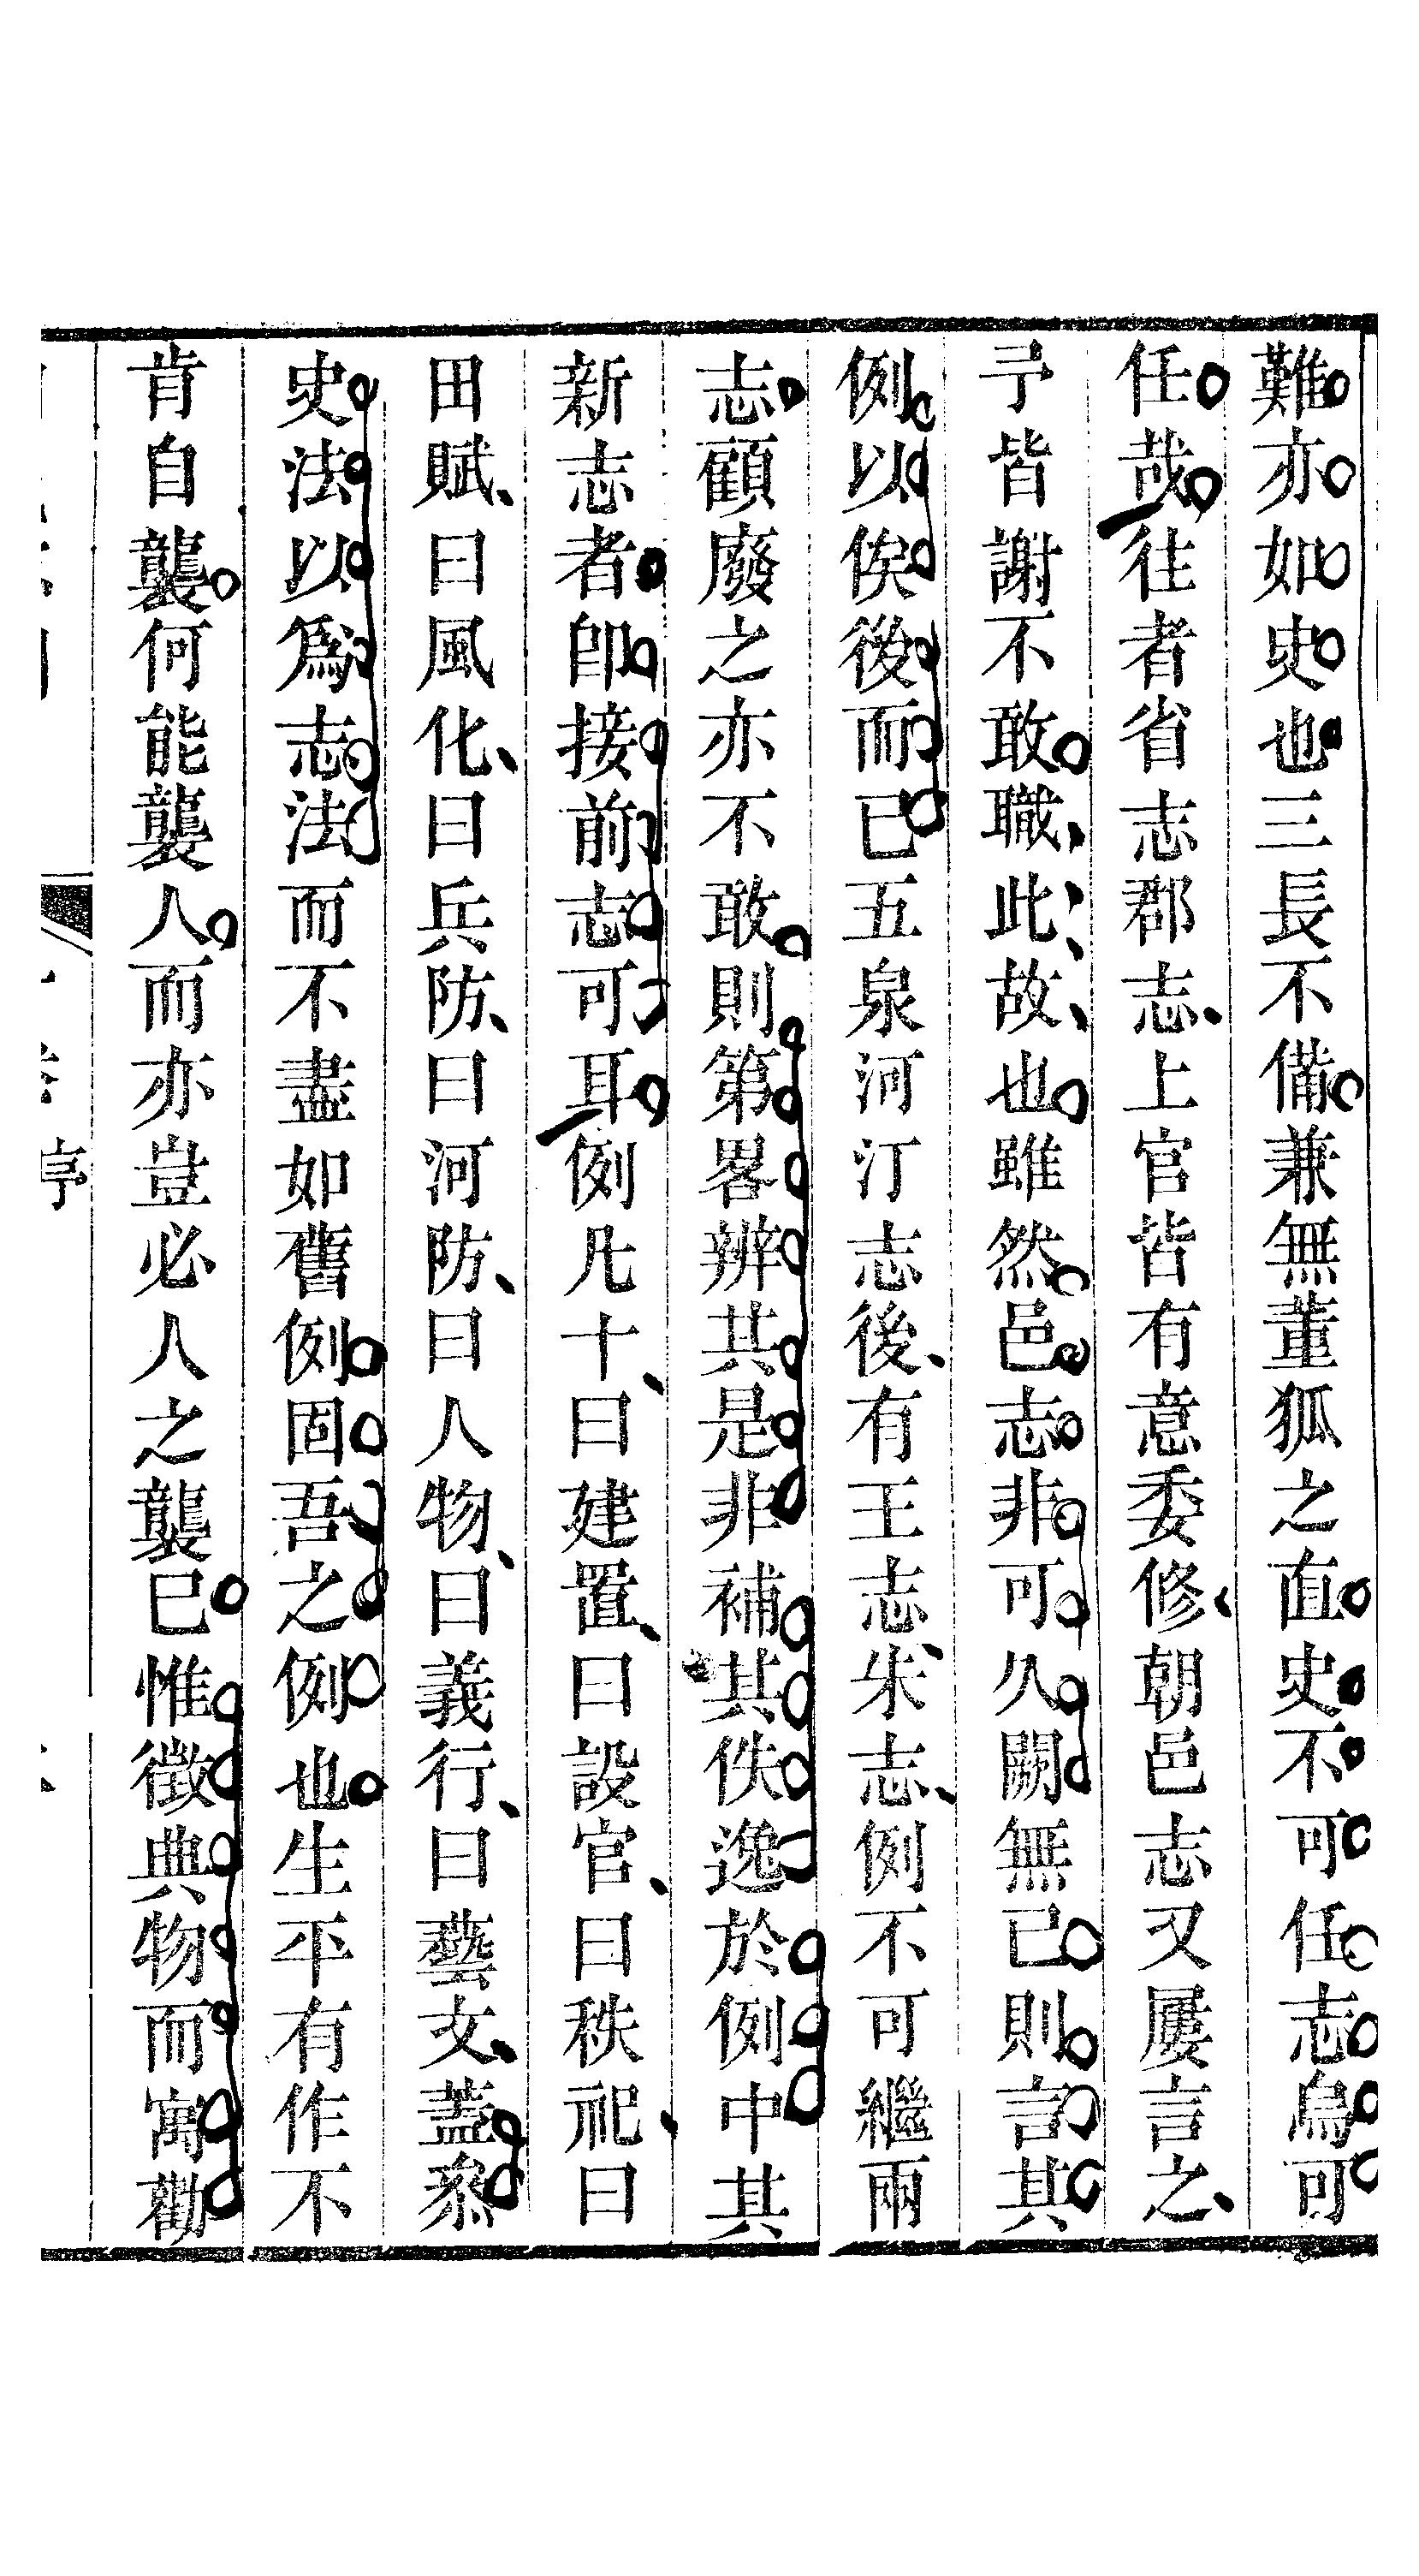 難亦如史也三長不備兼無董狐之直史不可任志烏可
任哉往者省志郡志上官皆有意委修朝邑志又屢言之
予皆謝不敢職此故也雖然邑志非可久闕無已則言其
例以俟後而已五泉河汀志後有王志朱志例不可繼兩
志顧廢之亦不敢則第畧辨其是非補其佚逸於例中其
新志者卽接前志可耳例凡十曰建置曰設官曰秩祀曰
田賦曰風化曰兵防曰河防曰人物曰義行曰藝文蓋叅
史法以爲志法而不盡如舊例固吾之例也生平有作不
肯自襲何能襲人而亦豈必人之襲已惟徵典物而寓勸
序